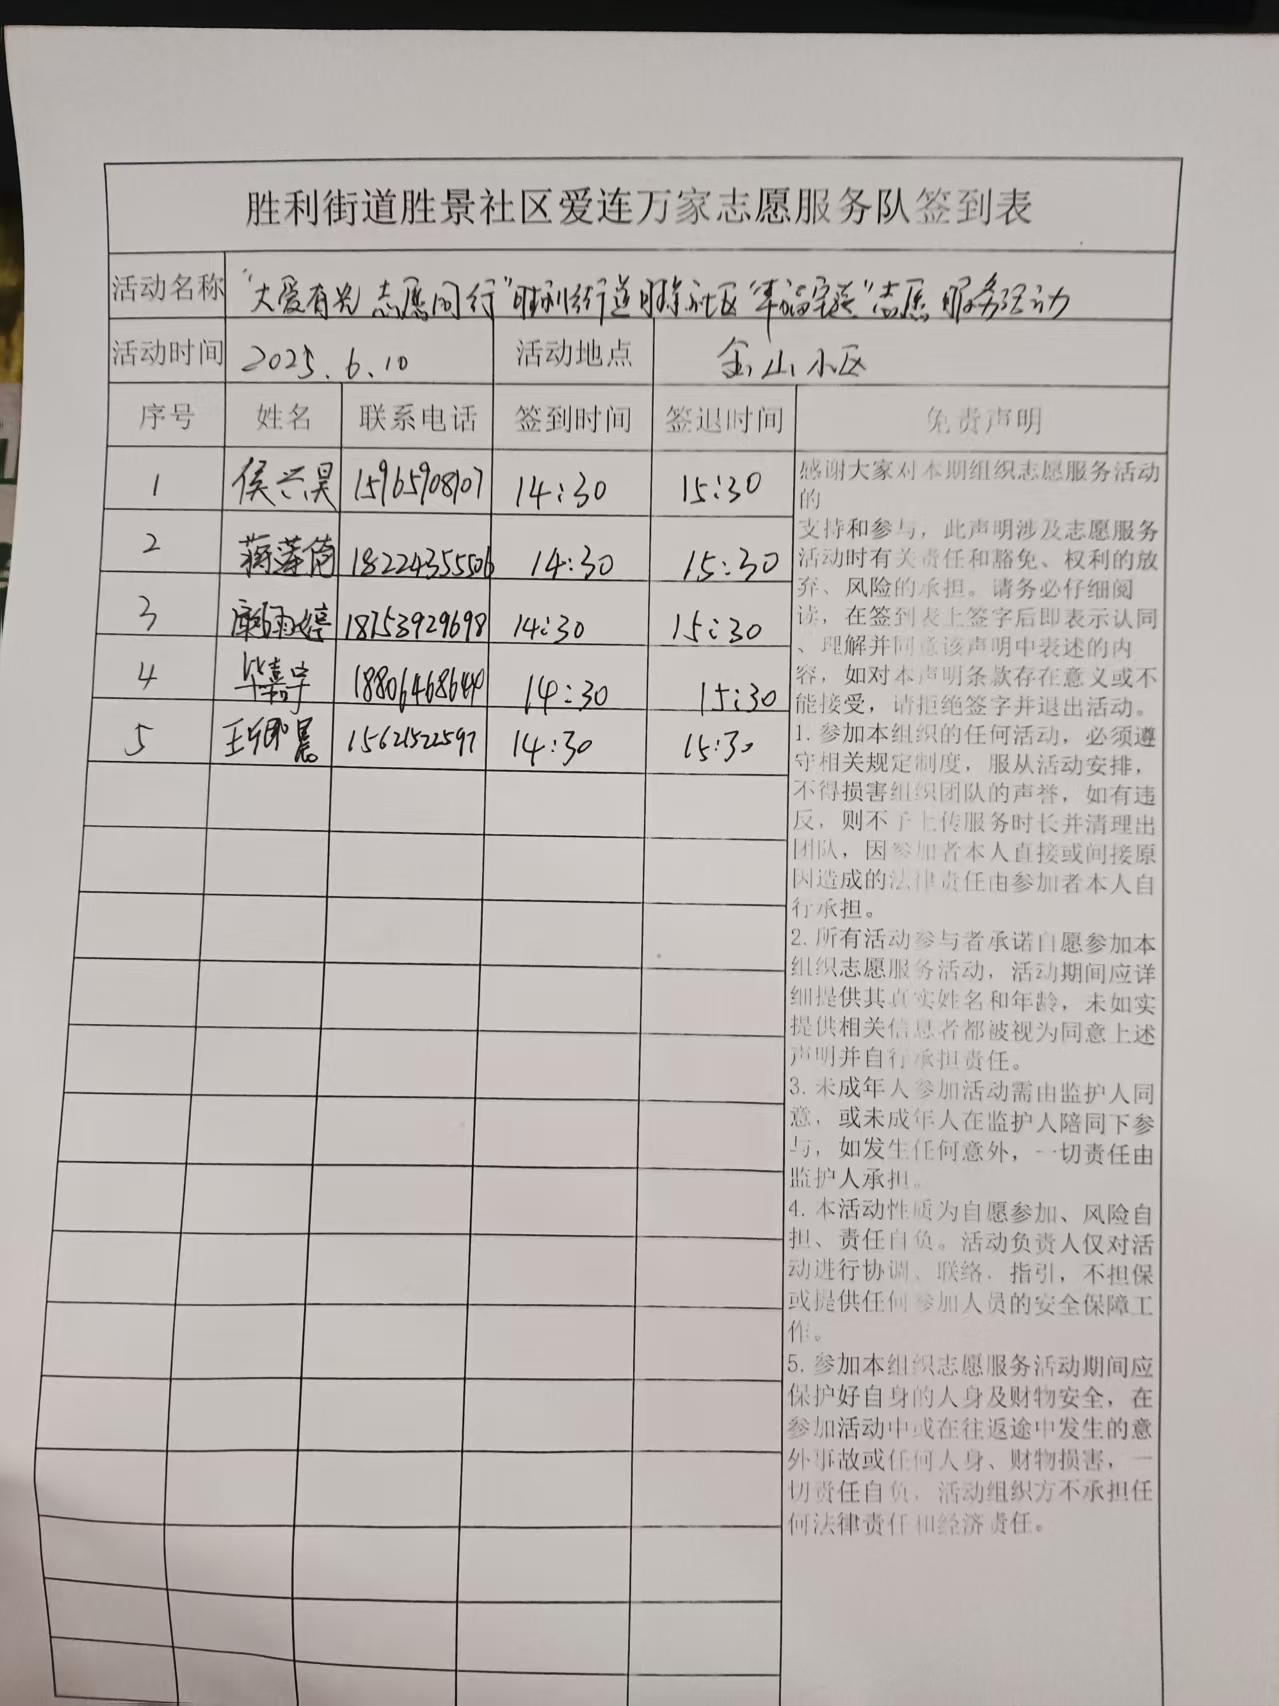 胜利街道胜景社区爱连万家志愿服务队签到表
活动名称 "大爱有光 志愿同行"胜利街道胜景社区"幸福守送"志愿服务活动
活动时间 2025.6.10 活动地点 金山小区
序号 姓名 联系电话 签到时间 签退时间 免责声明
1 侯兴昊 15965908107 14:30 15:30
2 蒋莲倩 18224355506 14:30 15:30
3 雨婷 18753929698 14:30 15:30
4 毕嘉宇 18806468640 14:30 15:30
5 王卿晨 15621522597 14:30 15:30
感谢大家对本期组织志愿服务活动
的
支持和参与，此声明涉及志愿服务
活动时有关责任和豁免、权利的放
弃、风险的承担。请务必仔细阅
读，在签到表上签字后即表示认同
、理解并同意该声明中表述的内
容，如对本声明条款存在意义或不
能接受，请拒绝签字并退出活动。
1. 参加本组织的任何活动，必须遵
守相关规定制度，服从活动安排，
不得损害组织团队的声誉，如有违
反，则不予上传服务时长并清理出
团队，因参加者本人直接或间接原
因造成的法律责任由参加者本人自
行承担。
2. 所有活动参与者承诺自愿参加本
组织志愿服务活动，活动期间应详
细提供其真实姓名和年龄，未如实
提供相关信息者都被视为同意上述
声明并自行承担责任。
3. 未成年人参加活动需由监护人同
意，或未成年人在监护人陪同下参
与，如发生任何意外，一切责任由
监护人承担。
4. 本活动性质为自愿参加、风险自
担、责任自负。活动负责人仅对活
动进行协调、联络、指引，不担保
或提供任何参加人员的安全保障工
作。
5. 参加本组织志愿服务活动期间应
保护好自身的人身及财物安全，在
参加活动中或在往返途中发生的意
外事故或任何人身、财物损害，一
切责任自负，活动组织方不承担任
何法律责任和经济责任。